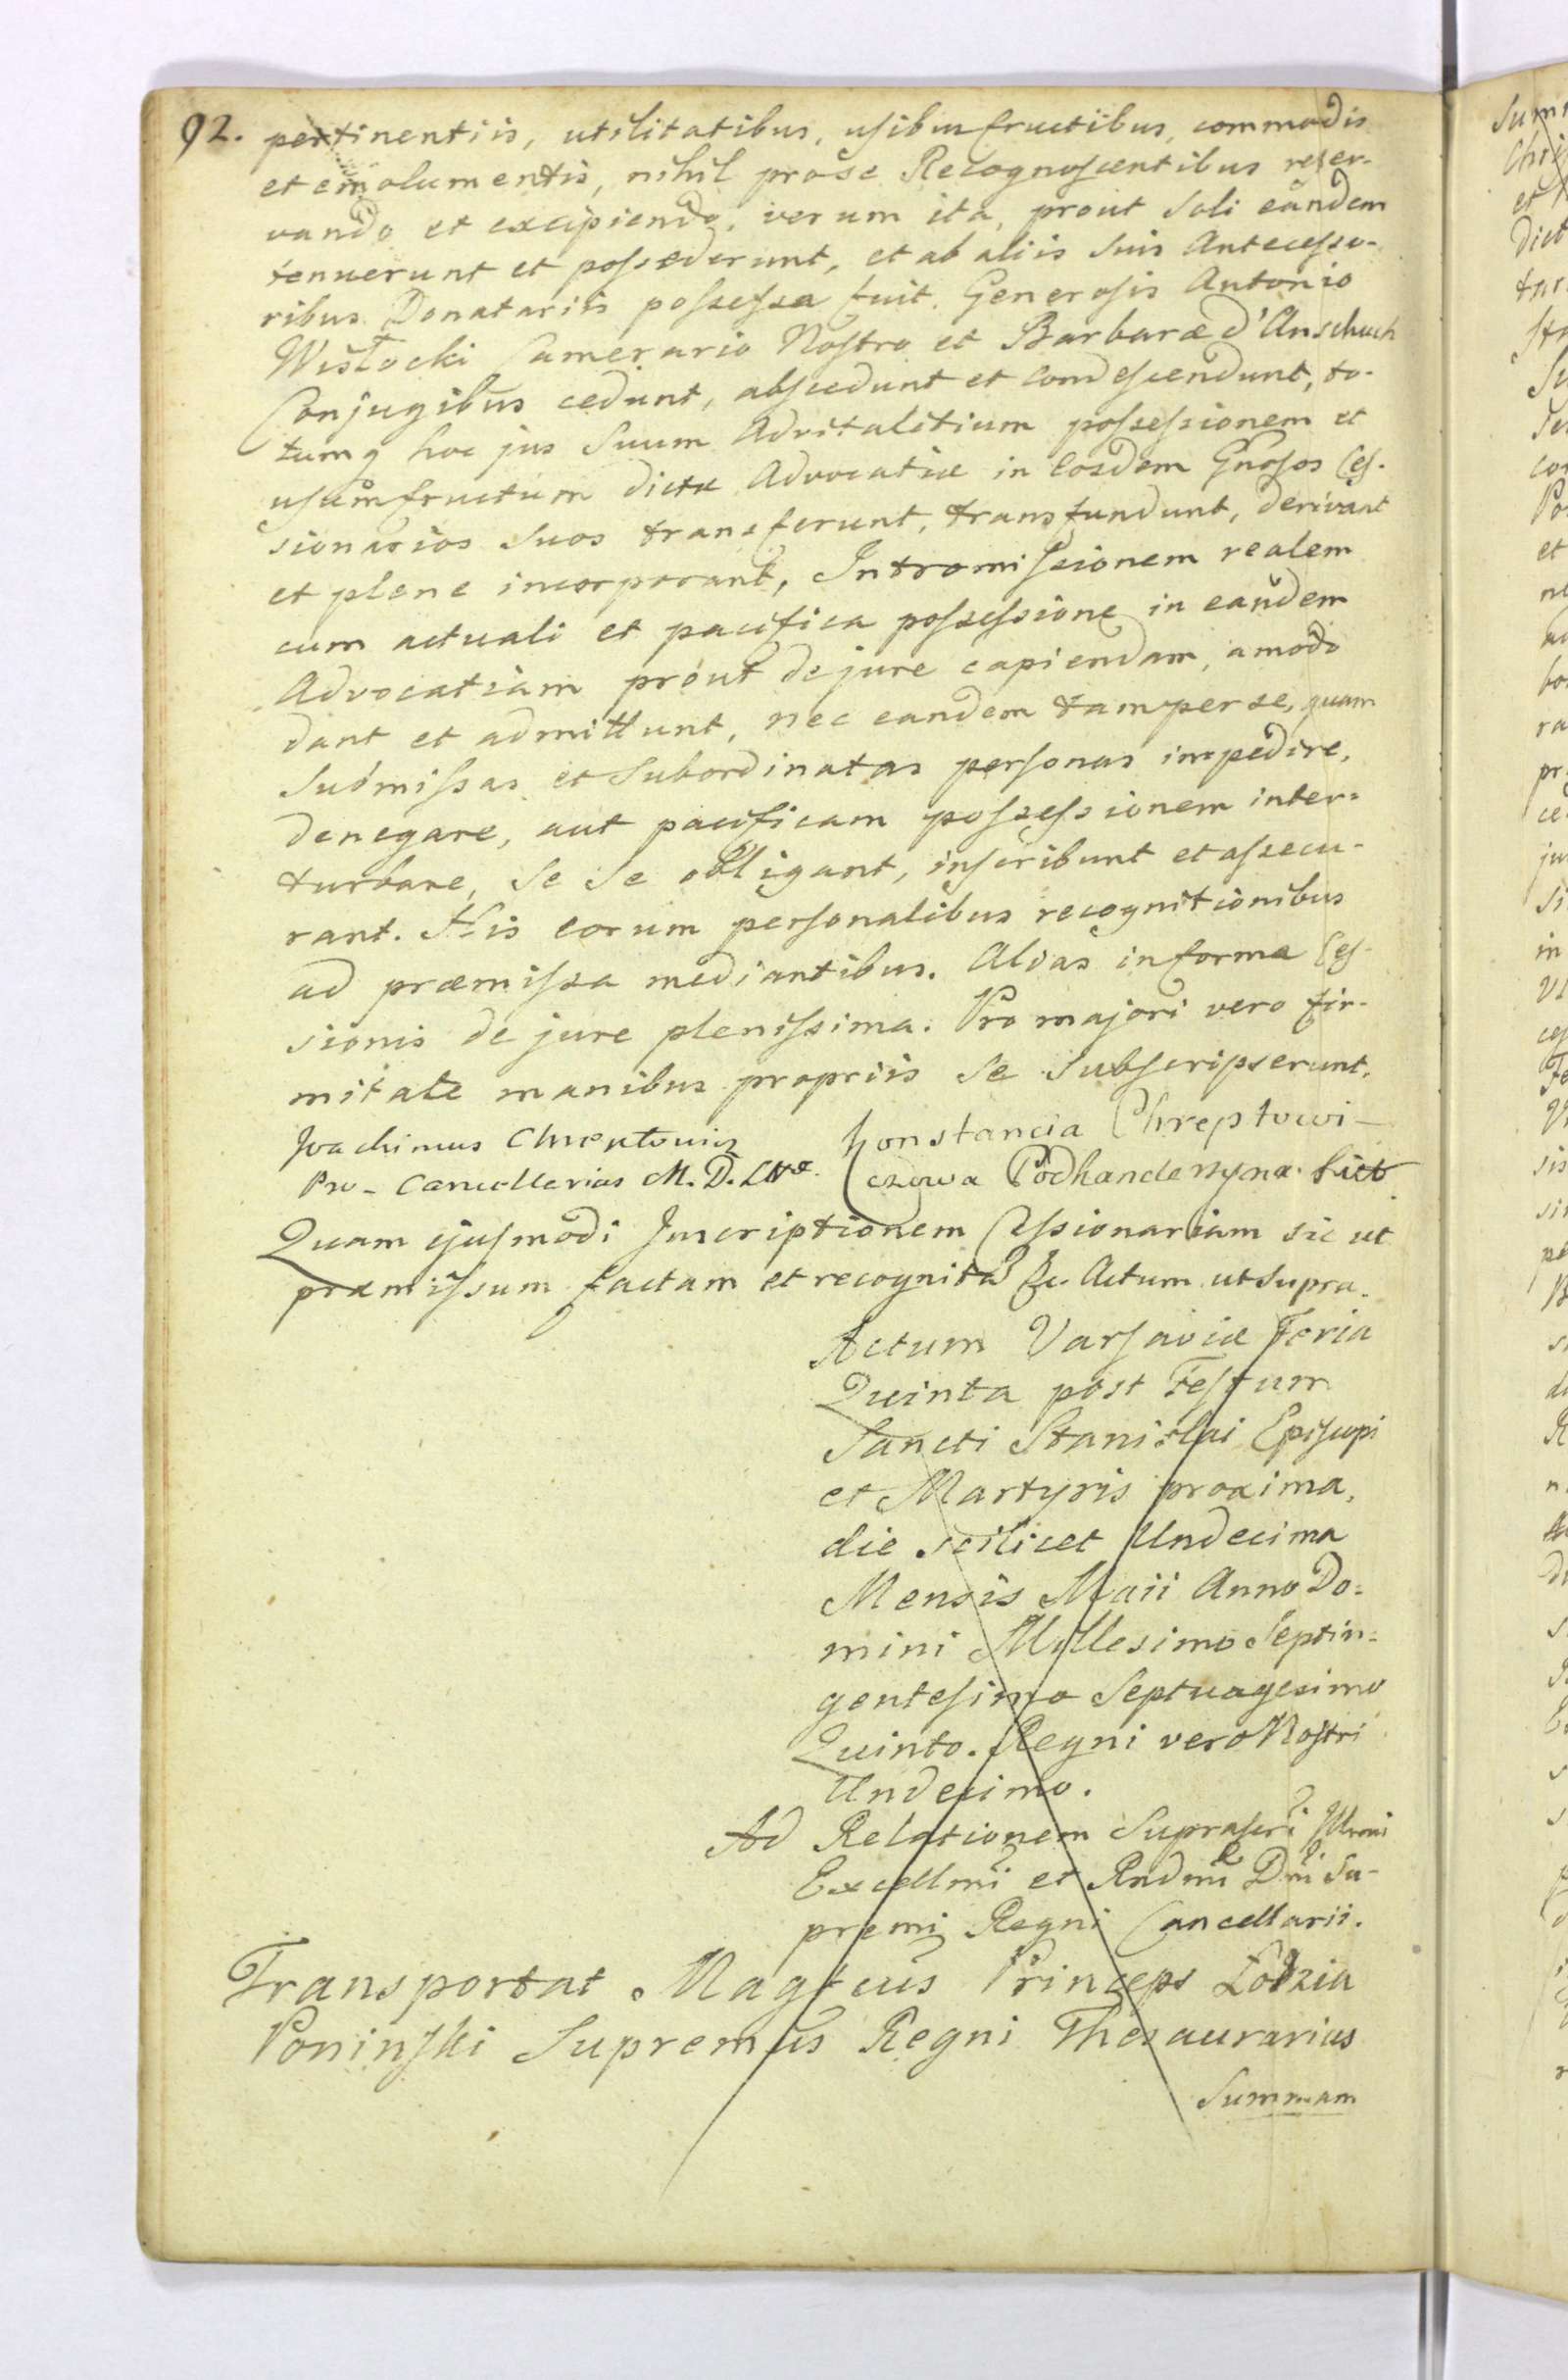 92. pertinentiis, utilitatibus, usibusfructibus, commodis
et emolumentis, nihil pro se Recognoscentibus reser-
vando et excipiendo, verum ita, prout soli eandem
tenuerunt et possederunt, et ab aliis suis Antecesso-
ribus Donatariis possessa fuit. Generosis Antonio
Wisłocki Camerario Nostro et Barbaræ d'Anschuch
Conjugibus cedunt, abscedunt et condescendunt, to-
tumq hoc jus Suum Advitalitium possessionem et
usumfructum dictæ Advocatiæ in Eosdem Gnosos Ces-
sionarios Suos transferunt, transfundunt, derivant
et plene incorporant, Intromissionem realem
cum actuali et pacifica possessione in eandem
Advocatiam prout de jure capiendam, amodo
dant et admittunt, nec eandem tam per se, quam
Submissas et Subordinatas personas impedire,
denegare, aut pacificam possessionem inter-
turbare, Se Se obligant, inscribunt et assecu-
rant. His eorum personalibus recognitionibus
ad præmissa mediantibus. Alias in forma Ces-
sionis de jure plenissima. Pro majori vero fir-
mitate manibus propriis Se Subscripserunt.
Joachimus Chreptowicz Konstancia Chreptowi-
Pro-Cancellarius M. D. Litt. czowa Podkanclerzyna Lit
Quam ejusmodi Inscriptionem Cessionariam sic ut
præmissum factam et recognitã &c. Actum ut supra.
Actum Varsaviæ Feria
Quinta post Festum
Sancti Stanislai Episcopi
et Martyris proxima,
die scilicet Undecima
Mensis Maii Anno Do-
mini Millesimo Septin-
gentesimo Septuagesimo
Quinto. Regni vero Nostri
Undecimo.
Ad Relationem Suprascri Illrmi
Excellmi et Rndmi Dni Su-
premi Regni Cancellarii.
Transportat Magfcus Princeps Łodzia
Poninski Supremus Regni Thesaurarius
Summam